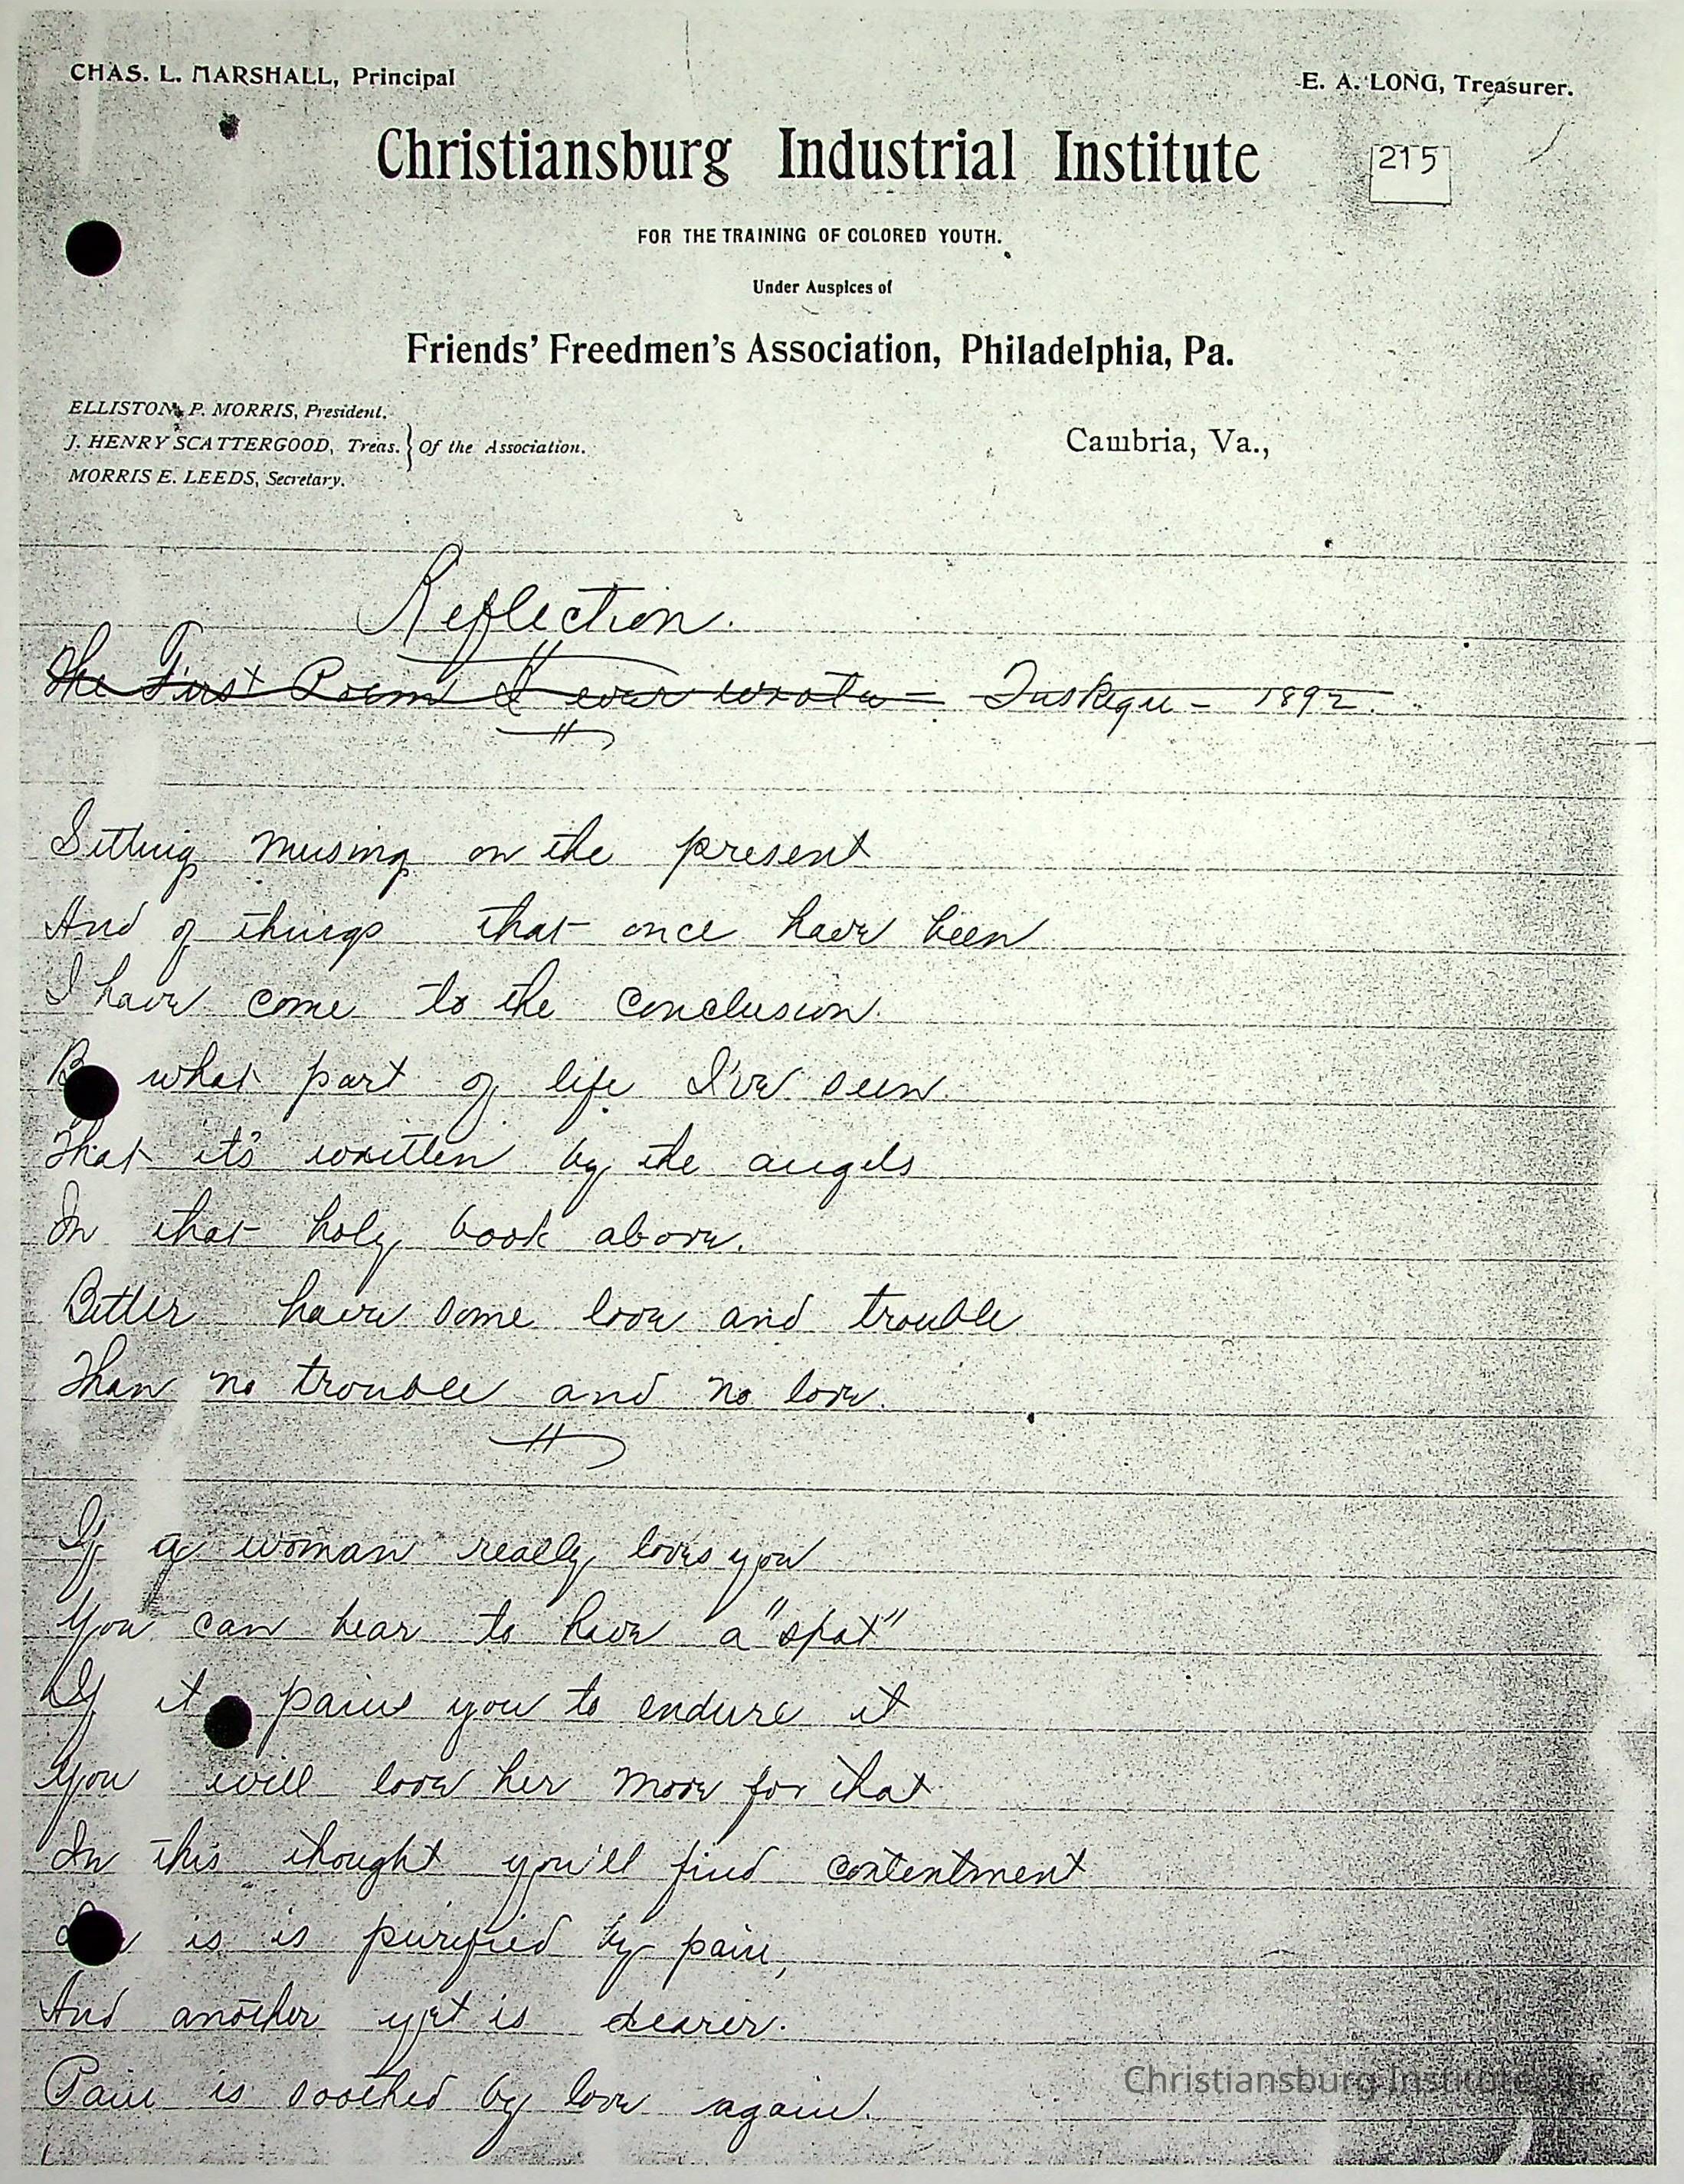 CHAS. L. MARSHALL, Principal
E. A. LONG, Treasurer.
Christiansburg Industrial Institute
215
FOR THE TRAINING OF COLORED YOUTH.
Under Auspices of
Friends' Freedmen's Association, Philadelphia, Pa.
ELLISTON P. MORRIS, President.
J. HENRY SCATTERGOOD, Treas. } Of the Association.
MORRIS E. LEEDS, Secretary.
Cambria, Va.,
Reflection.
The First Poem I ever wrote = Tuskegee - 1892.
Sitting musing on the present
And of things that once have been
I have come to the conclusion.
what part of life I've seen.
That it's written by the angels
In that holy book above.
Better have some love and trouble
Than no trouble and no love.
If a woman really loves you
You can bear to have a "spat"
If it pains you to endure it
You will love her more for that
In this thought you'll find contentment
is is purified by pain,
And another yet is dearer.
Pain is soothed by love again.
Christiansburg Institute, Inc